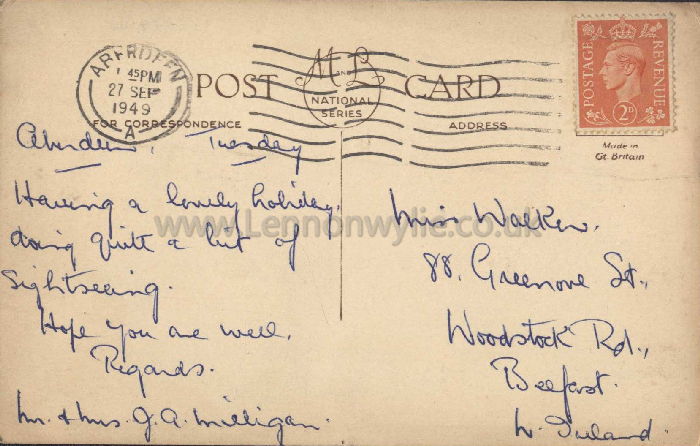 ABERDEEN
45PM
27 SEP
1949
A
POST CARD
M & L
NATIONAL
SERIES
FOR CORRESPONDENCE
ADDRESS
POSTAGE REVENUE
2D
Made in
Gt Britain
www.Lennonwylie.co.uk
Aberdeen, Tuesday
Having a lovely holiday,
doing quite a bit of
sightseeing.
Hope you are well.
Regards.
Mr. & Mrs. J. A. Milligan.
Miss Walker,
88, Greenore St.,
Woodstock Rd.,
Belfast.
N. Ireland.